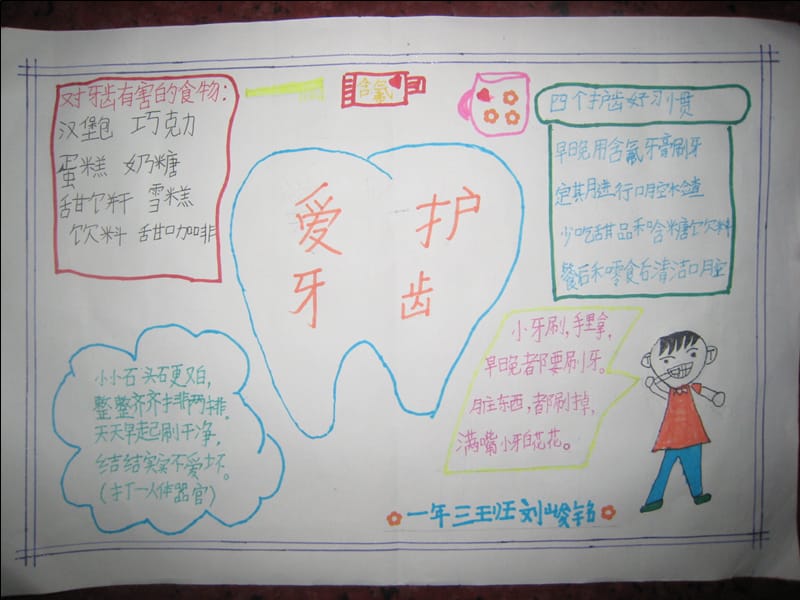 对牙齿有害的食物：
汉堡包 巧克力
蛋糕 奶糖
甜饮料 雪糕
饮料 甜咖啡
含氟
爱护
牙齿
四个护齿好习惯
早日晚用含氟牙膏刷牙
定其月进行口腔检查
少吃甜品和含糖饮料
餐后和零食后清洁口腔
小牙刷，手里拿，
早日晚都要刷牙。
脏东西，都刷掉，
满嘴小牙白花花。
小小石头硬又白，
整整齐齐排两排。
天天早起刷干净，
结结实实不爱坏。
（打一人体器官）
一年三班刘峻铭